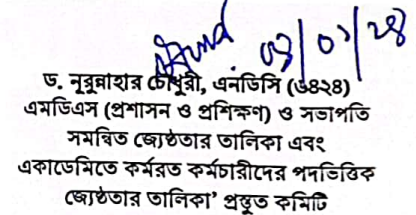 ০৩/০১/২৪
ড. নূরুন্নাহার চৌধুরী, এনডিসি (৬৪২৪)
এমডিএস (প্রশাসন ও প্রশিক্ষণ) ও সভাপতি
সমন্বিত জ্যেষ্ঠতার তালিকা এবং
একাডেমিতে কর্মরত কর্মচারীদের পদভিত্তিক
জ্যেষ্ঠতার তালিকা’ প্রস্তুত কমিটি